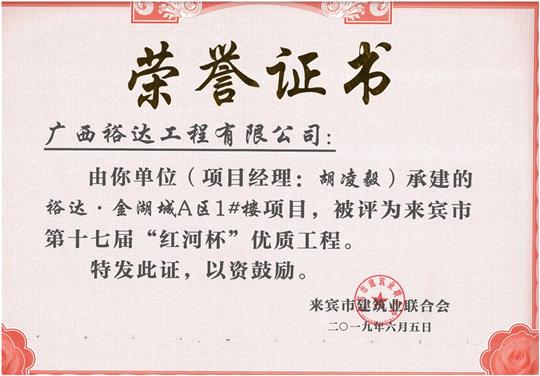 荣誉证书
广西裕达工程有限公司：
由你单位（项目经理：胡凌毅）承建的
裕达·金湖城A区1#楼项目，被评为来宾市
第十七届“红河杯”优质工程。
特发此证，以资鼓励。
来宾市建筑业联合会
二〇一九年六月五日